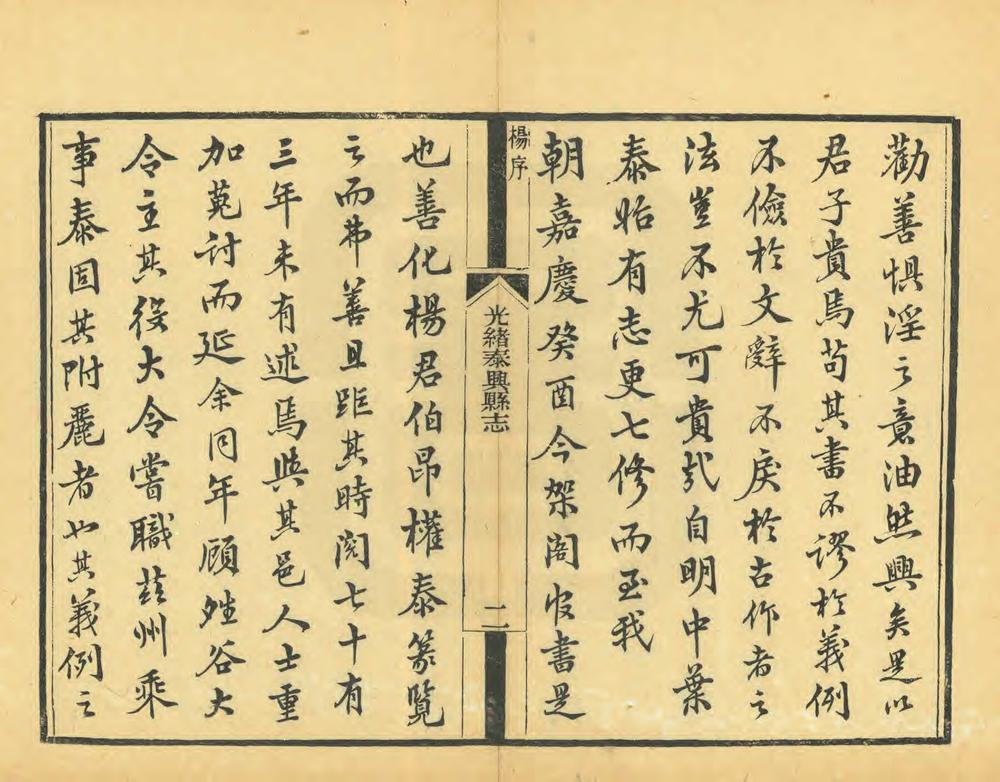 勸善懼淫之意油然興矣是以
君子貴焉苟其書不謬於義例
不儉於文辭不戾於古作者之
法豈不尤可貴哉自明中葉
泰始有志更七修而至我
朝嘉慶癸酉今架閣所書是
楊序
光緒泰興縣志
二
也善化楊君伯昂權泰篆覽
之而弗善且距其時閱七十有
三年未有述焉與其邑人士重
加蒐討而延余同年顧
谷大
令主其役大令嘗職茲州乘
事泰固其附麗者也其義例之